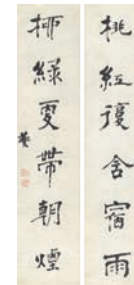 桃紅複含宿雨
柳綠更帶朝煙